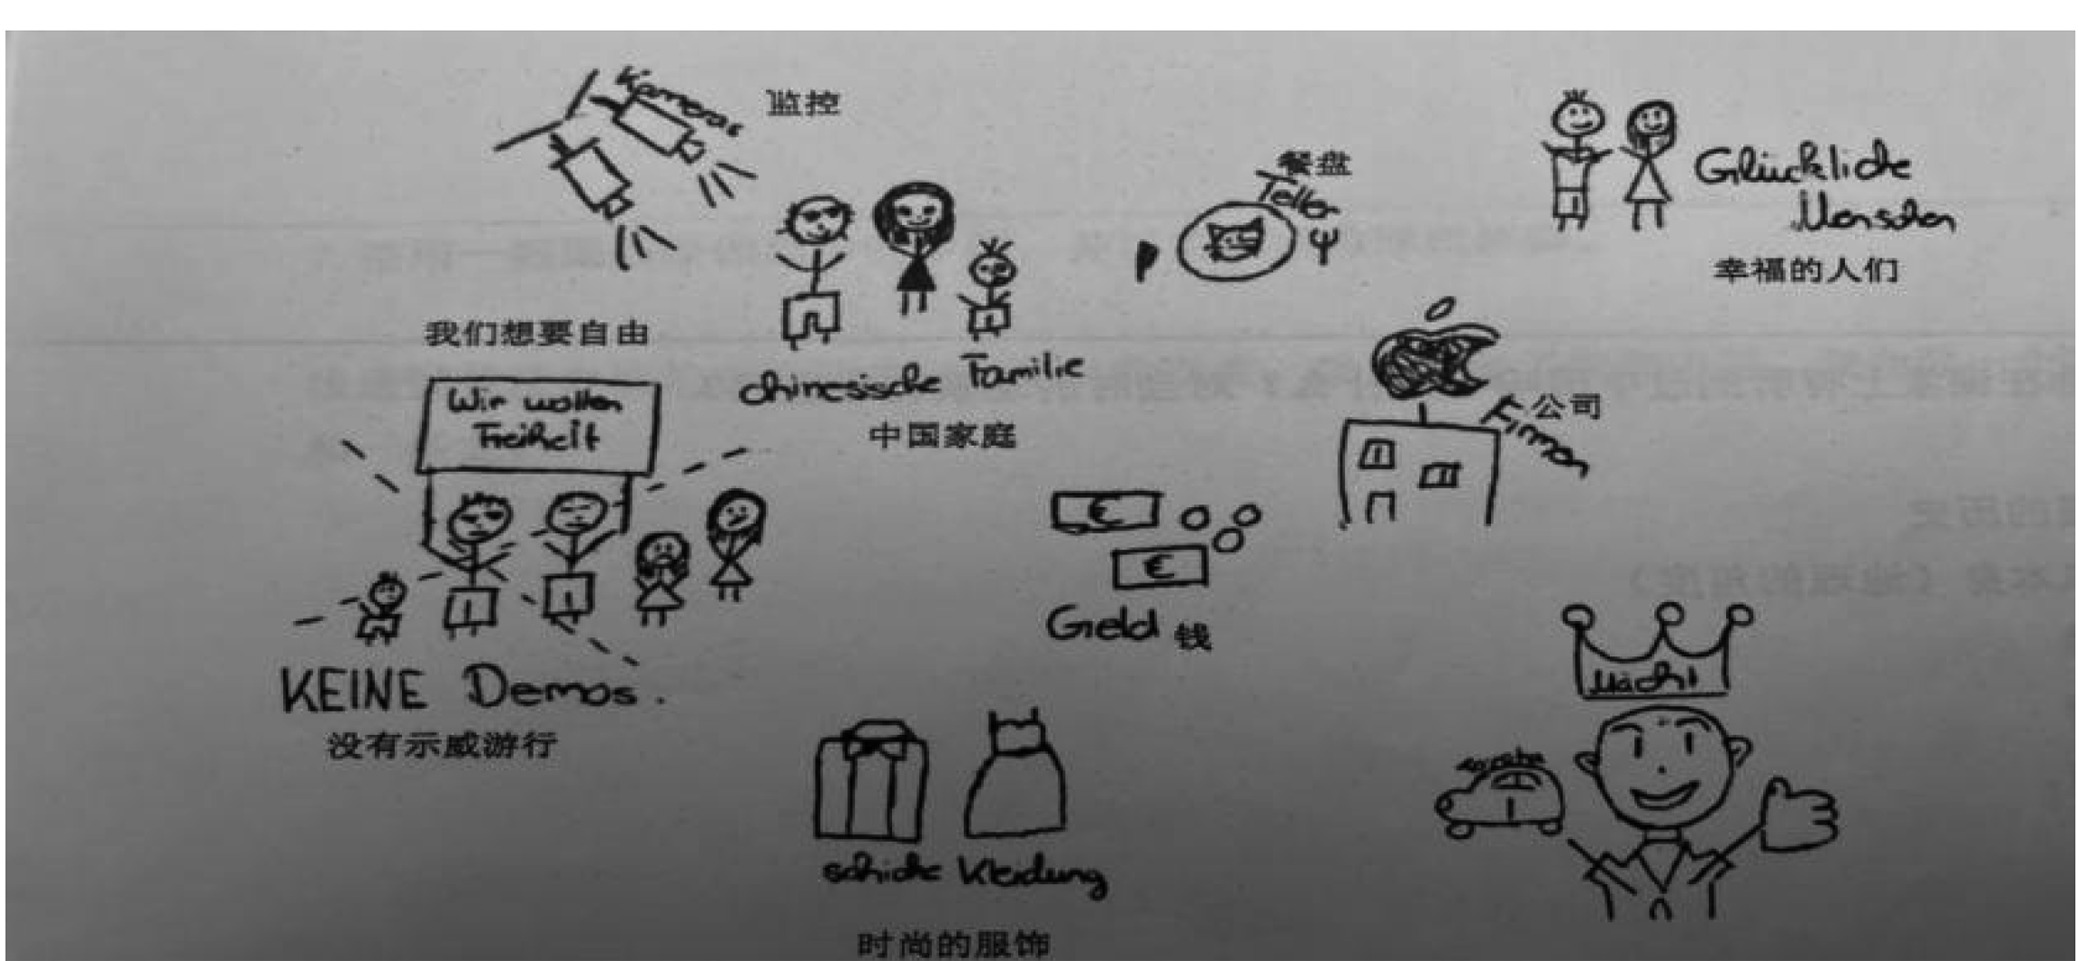 Kameras
监控
餐盘
Teller
Glückliche
Menschen
幸福的人们
我们想要自由
Wir wollen
Freiheit
chinesische Familie
中国家庭
Firmen
公司
€
€
Geld 钱
KEINE Demos.
没有示威游行
Macht
schicke Kleidung
时尚的服饰